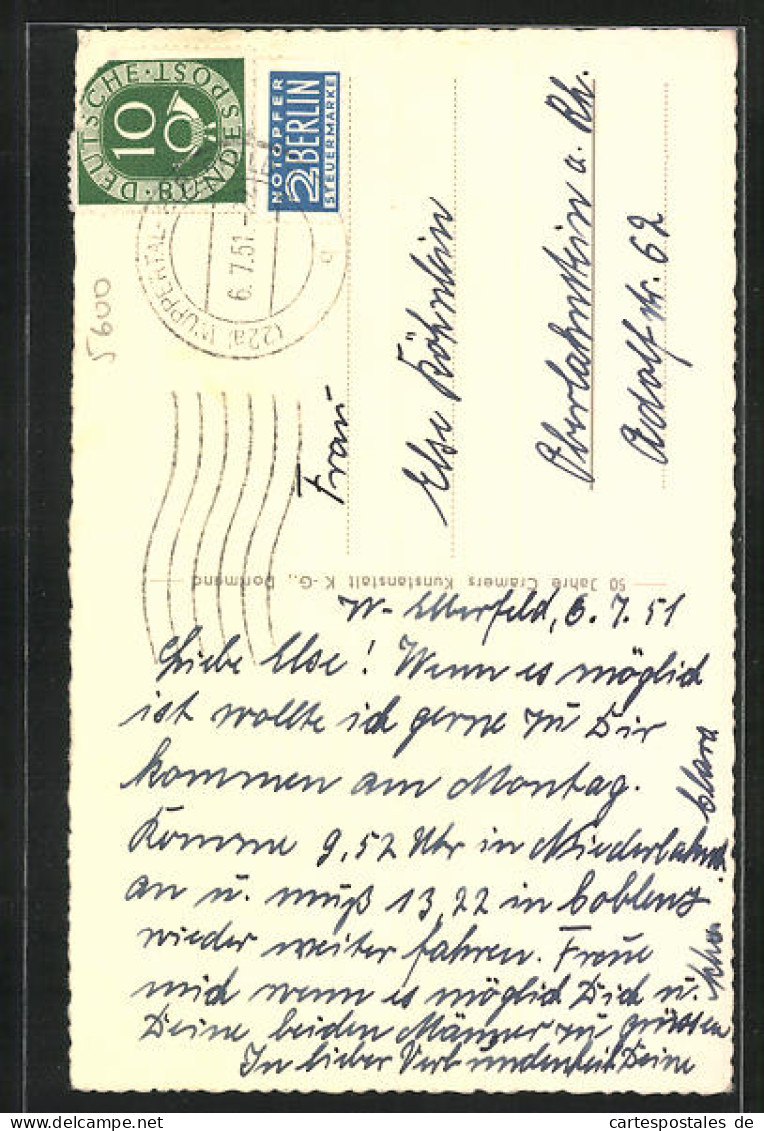 DEUTSCHE · BUNDESPOST ·
10
NOTOPFER
2 BERLIN
STEUERMARKE
(22a) WUPPERTAL-
6.7.51.-
a
5600
Frau
Else Köhnlein
Oberlahnstein a. Rh.
Adolfstr. 62
50 Jahre Cramers Kunstanstalt K.-G., Dortmund
W-Elberfeld, 6.7.51
Liebe Else! Wenn es möglich
ist wollte ich gerne zu Dir
kommen am Montag.
Komme 9,52 Uhr in Niederlahnst.
an u. muß 13,22 in Coblenz
wieder weiter fahren. Freue
mich wenn es möglich Dich u.
Deine beiden Männer zu grüssen
In lieber Verbundenheit Deine
Clara
cartespostales de